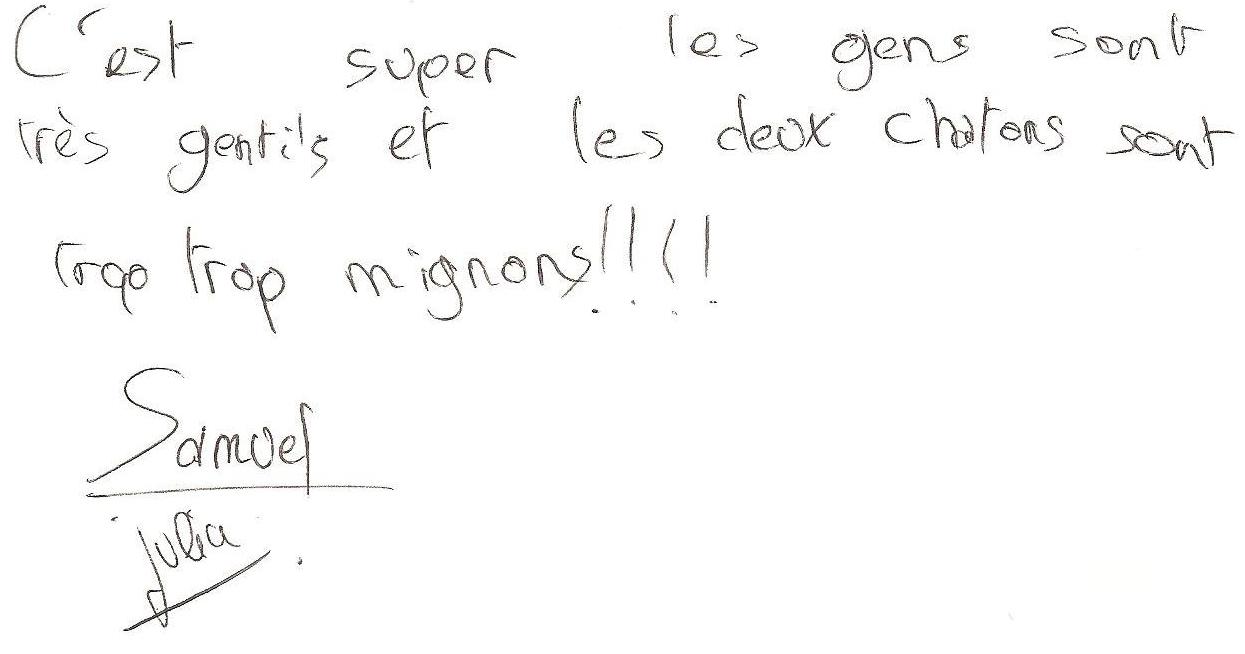 C'est super les gens sont
très gentils et les deux chatons sont
trop trop mignons!!!!
Samuel
julia.